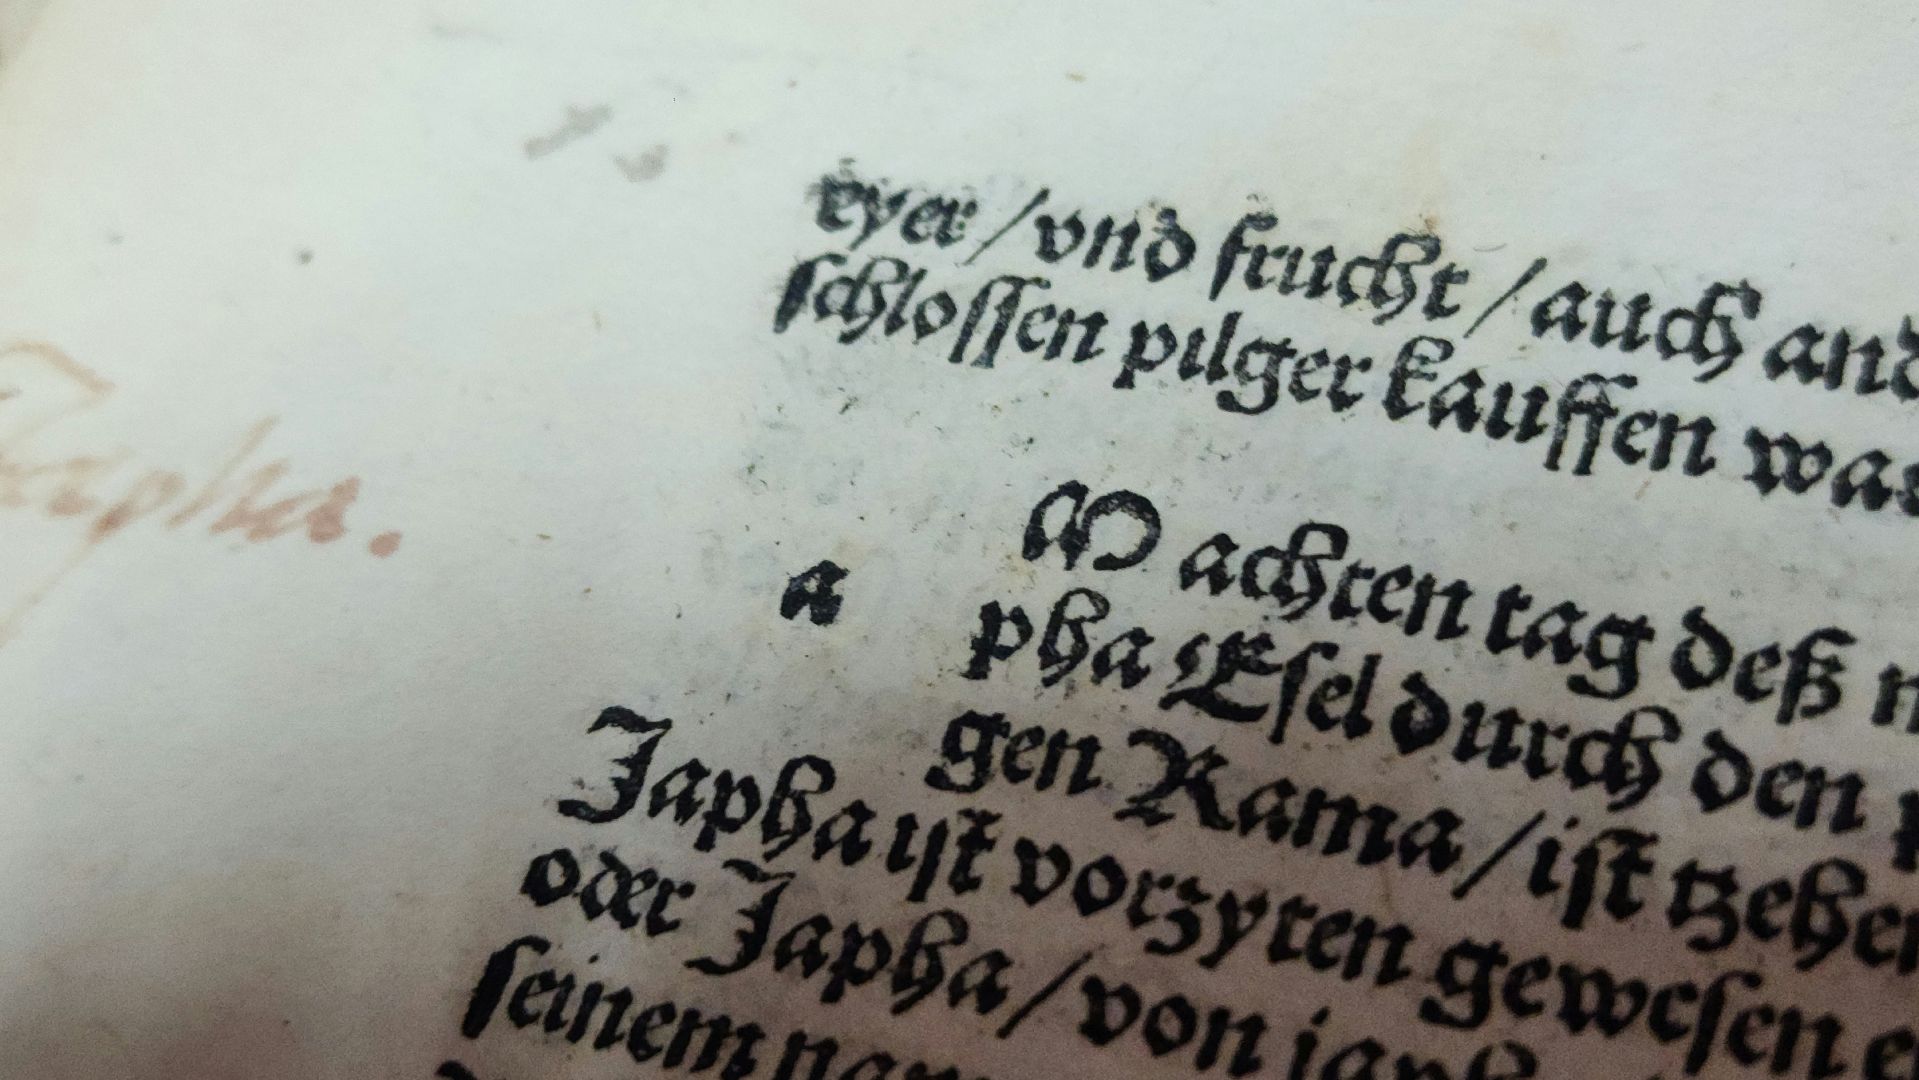 eyer / vnd frucht / auch and
schlossen pilger kauffen was
Japha.
a
M achten tag deß
pha Esel durch den
gen Rama / ist tzehen
Japha ist vorzyten gewesen
oder Japha / von japh
seinem